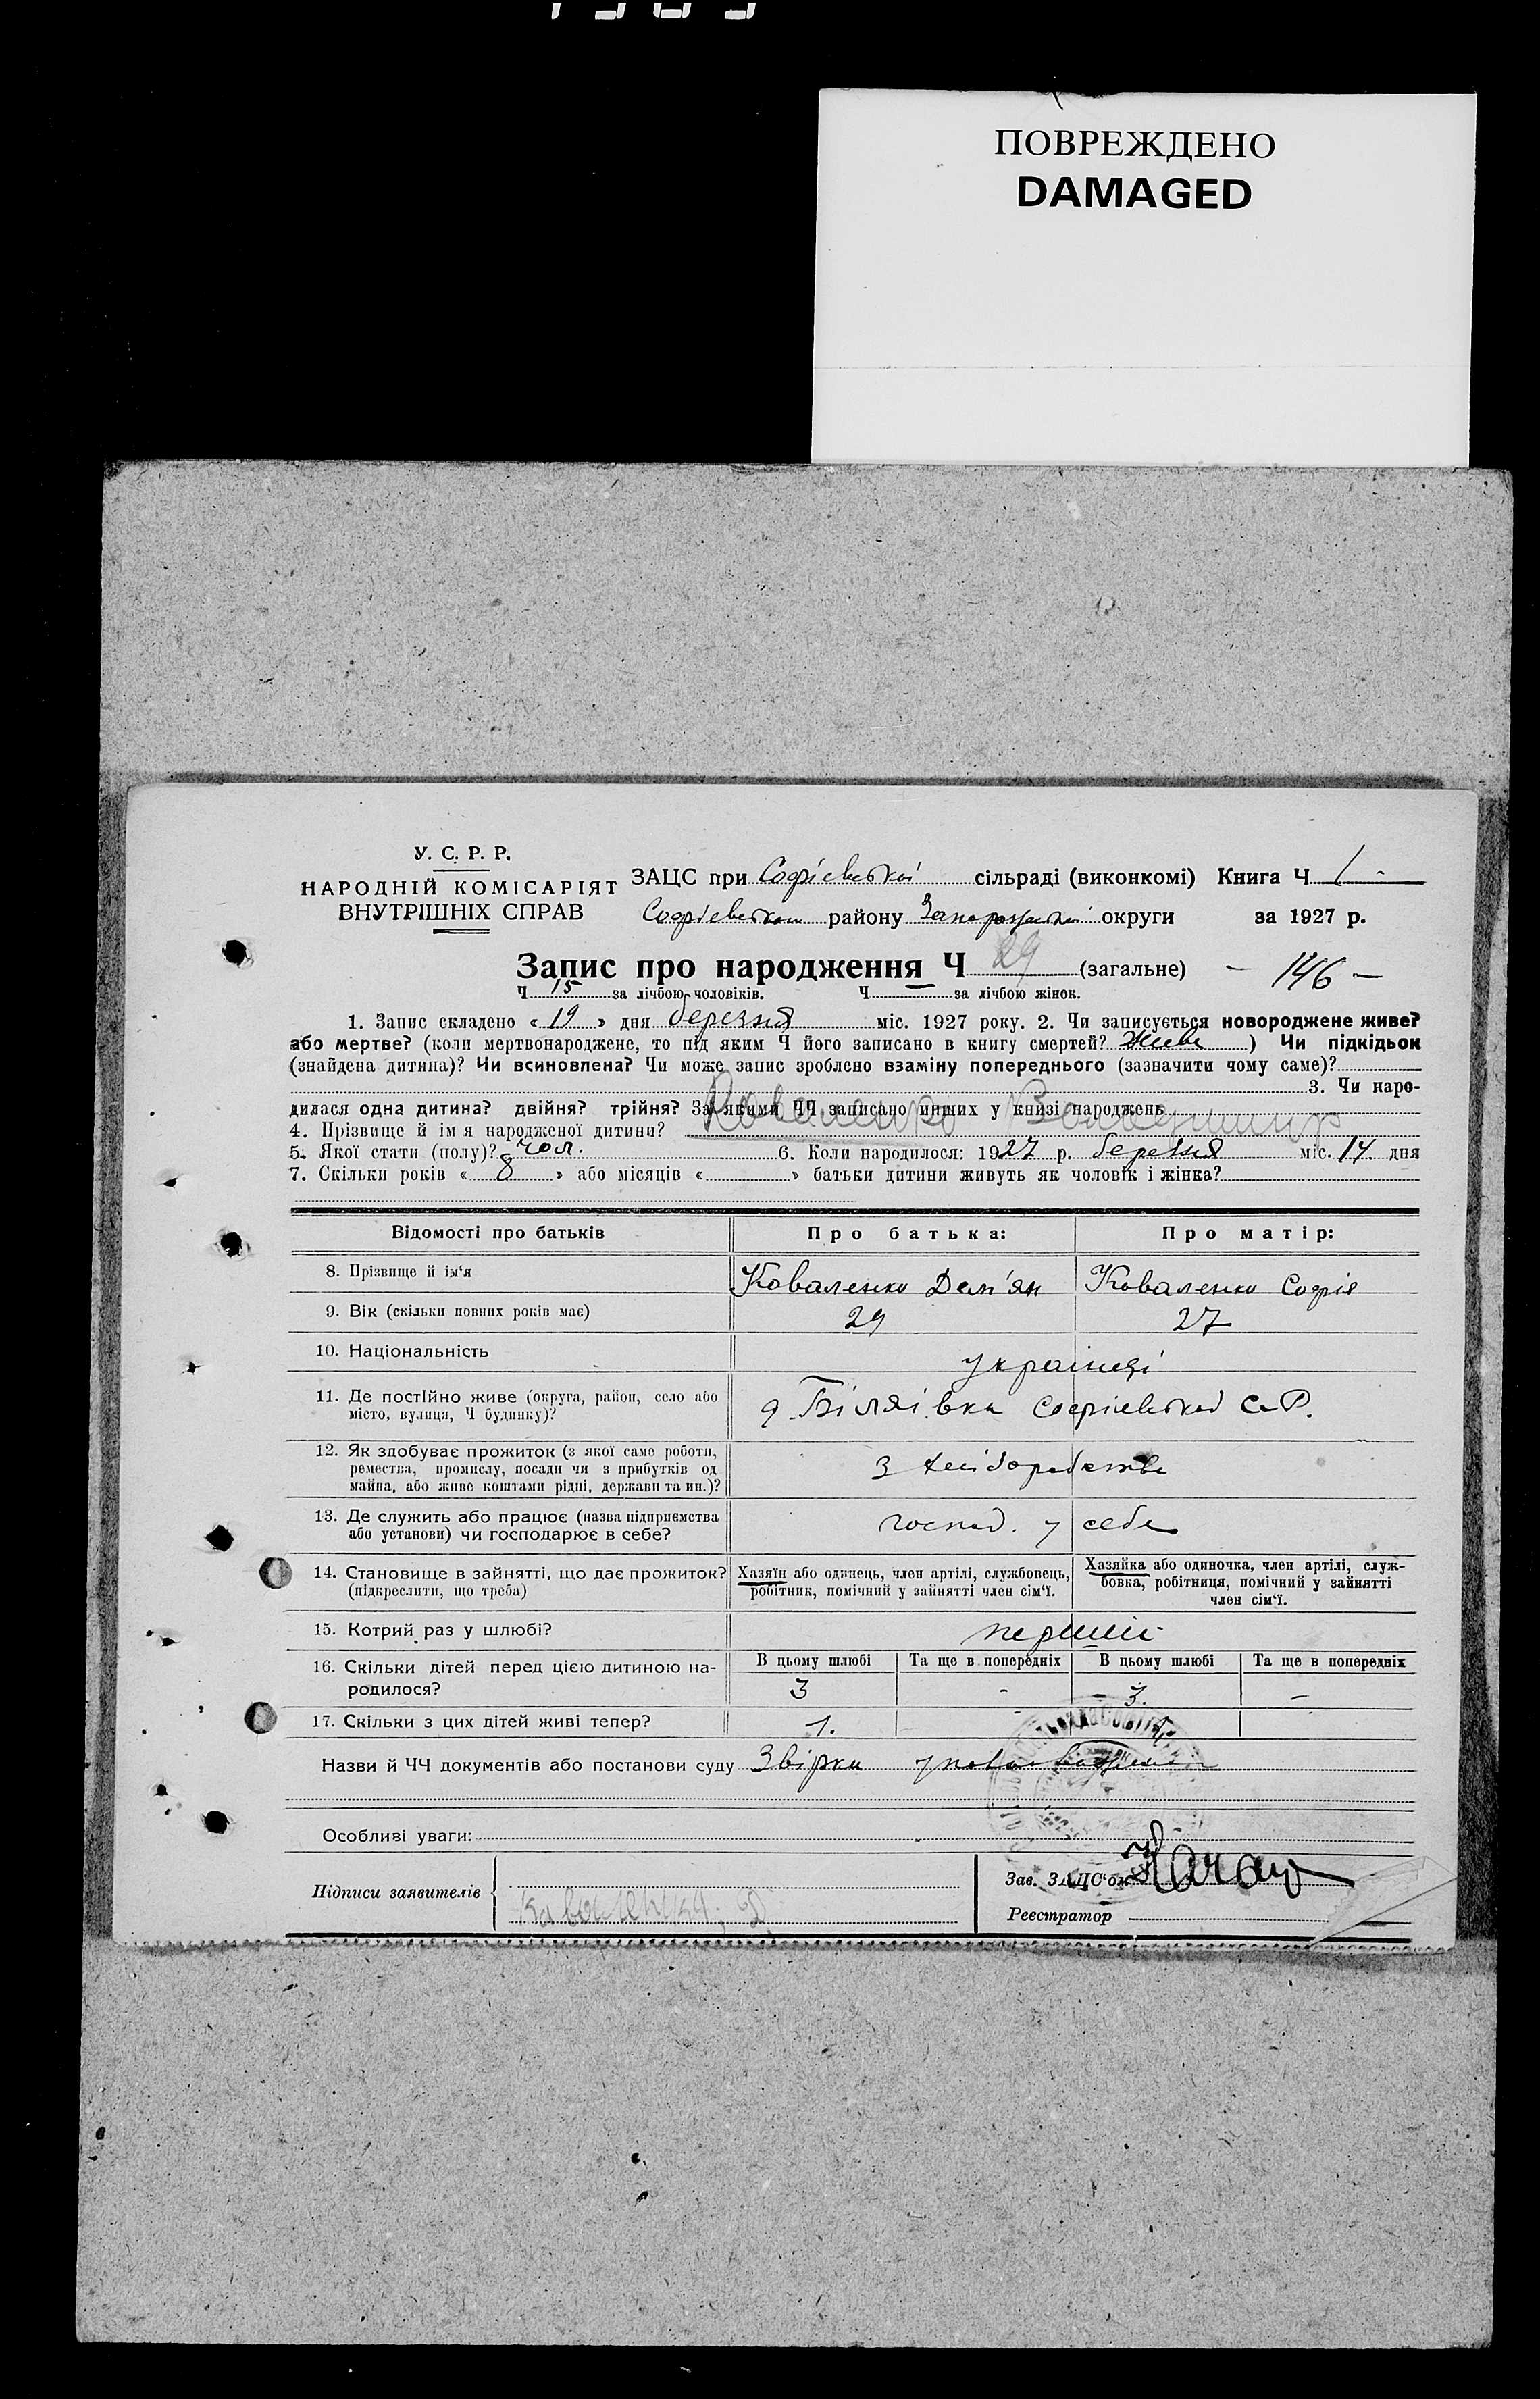 ПОВРЕЖДЕНО
DAMAGED
У. С. Р. Р.
НАРОДНІЙ КОМІСАРІЯТ
ВНУТРІШНІХ СПРАВ
ЗАЦС при Софієвській сільраді (виконкомі) Книга Ч 1 -
Софієвськом району Запорізької округи за 1927 р.
Запис про народження Ч 29 (загальне) - 146 -
Ч 15 за лічбою чоловіків. Ч за лічбою жінок.
1. Запис складено « 19 » дня березня міс. 1927 року. 2. Чи записується новороджене живе?
або мертве? (коли мертвонароджене, то під яким Ч його записано в книгу смертей? живе ) Чи підкідьок
(знайдена дитина)? Чи всиновлена? Чи може запис зроблено взаміну попереднього (зазначити чому саме)?
3. Чи наро-
дилася одна дитина? двійня? трійня? За якими ЧЧ записано инших у книзі народжень
4. Прізвище й ім я народженої дитини? Коваленко Володимир
5. Якої стати (полу)? Чол. 6. Коли народилося: 1927 р. березня міс. 14 дня
7. Скільки років « 8 » або місяців « » батьки дитини живуть як чоловік і жінка?
Відомості про батьків Про батька: Про матір:
8. Прізвище й ім'я Коваленко Дем'ян Коваленко Софія
9. Вік (скільки повних років має) 29 27
10. Національність українці
11. Де постійно живе (округа, район, село або
місто, вулиця, Ч будинку)? д. Біляївка Софієвської С.Р.
12. Як здобуває прожиток (з якої саме роботи,
ремества, промислу, посади чи з прибутків од
майна, або живе коштами рідні, держави та ин.)? з хліборобства
13. Де служить або працює (назва підприємства
або установи) чи господарює в себе? господ. у себе
14. Становище в зайнятті, що дає прожиток?
(підкреслити, що треба)
Хазяїн або одинець, член артілі, службовець,
робітник, помічний у зайнятті член сім'ї.
Хазяйка або одиночка, член артілі, служ-
бовка, робітниця, помічний у зайнятті
член сім'ї.
15. Котрий раз у шлюбі? перший
16. Скільки дітей перед цією дитиною на-
родилося?
В цьому шлюбі Та ще в попередніх В цьому шлюбі Та ще в попередніх
3 - 3. -
17. Скільки з цих дітей живі тепер? 1.
Назви й ЧЧ документів або постанови суду Звірка
Особливі уваги:
Підписи заявителів Коваленко Д
Зав. ЗАЦС'ом
Реєстратор